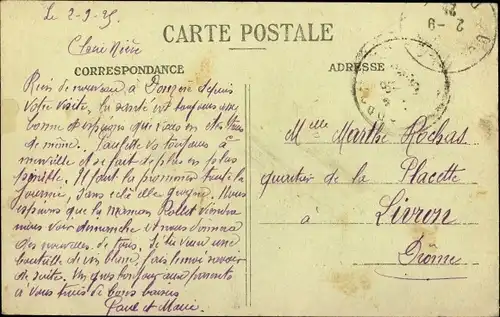 Le 2-9-25
CARTE POSTALE
Chère Mère
CORRESPONDANCE
ADRESSE
Rien de nouveau à Donzère depuis
votre visite, la santé est toujours assez
bonne et espérons que vous en êtes tous
de même. Paulette va toujours à
merveille et se fait de plus en plus
pénible. Il faut la promener toute la
journée, sans cela elle grogne. Nous
espérons que la maman Rollet viendra
nous voir dimanche et nous donnera
des nouvelles de tous. Si tu veux une
bouteille de vin blanc, fais le moi savoir
de suite. Vois que toujours aux parents
à vous trois de bons baisers
Paul et Marie
Melle Marthe Rochas
quartier de la Placette
Livron
Drôme
2-9
25